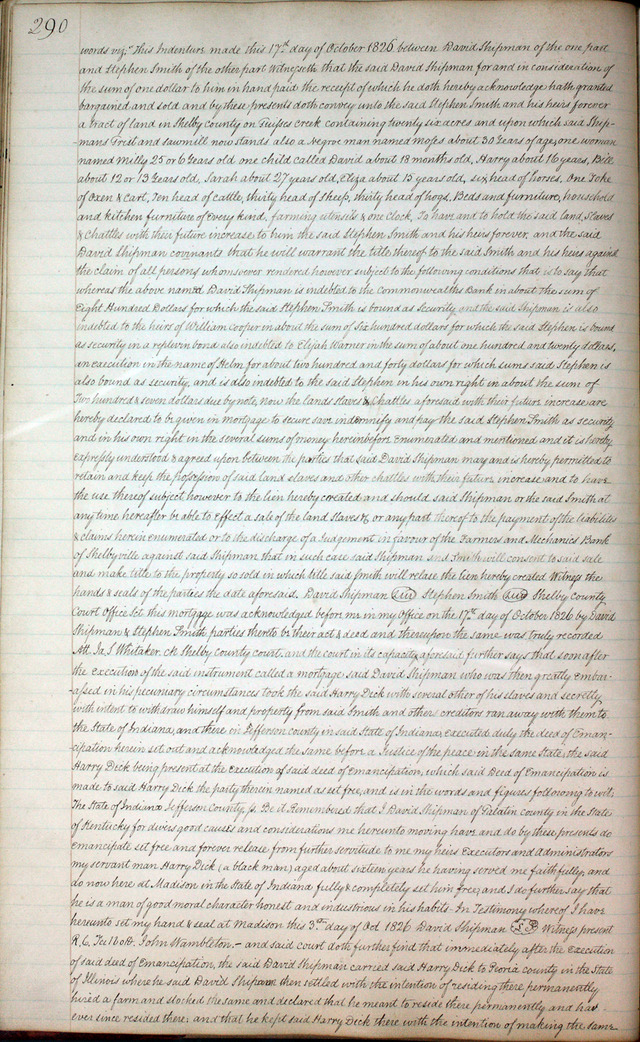 290
words viz. "This Indenture made this 17th day of October 1826 between David Shipman of the one part
and Stephen Smith of the other part Witnesseth that the said David Shipman for and in consideration of
the sum of one dollar to him in hand paid the receipt of which he doth hereby acknowledge hath granted
bargained and sold and by these presents doth convey unto the said Stephen Smith and his heirs forever
a tract of land in Shelby county on Creek containing twenty six acres and upon which said Ship-
-mans Grist and sawmill now stands also a Negroe man named Moses about 30 Years of age, one woman
named Milly 25 or 6 Years old one child called David about 18 months old, Harry about 16 years, Bill
about 12 or 13 Years old, Sarah about 27 years old, Eliza about 15 years old, six head of horses. One Yoke
of Oxen & Cart, Ten head of cattle, thirty head of sheep, thirty head of hogs. Beds and furniture, household
and kitchen furniture of Every kind, farming utensils & one clock, To have and to hold the said land, Slaves
& Chattles with their future increase to him the said Stephen Smith and his heirs forever, and the said
David Shipman covenants that he will warrant the title thereof to the said Smith and his heirs against
the claim of all persons whomsoever rendered however subject to the following conditions that is to say that
whereas the above named David Shipman is indebted to the Commonwealths Bank in about the sum of
Eight Hundred Dollars for which the said Stephen Smith is bound as security and the said Shipman is also
indebted to the heirs of William Cooper in about the sum of Six hundred dollars for which the said Stephen is bound
as security in a replevin bond also indebted to Elijah Warner in the sum of about one hundred and twenty dollars,
an execution in the name of Helm for about two hundred and forty dollars for which sums said Stephen is
also bound as security, and is also indebted to the said Stephen in his own right in about the sum of
Two hundred & seven dollars due by note, Now the lands slaves & Chattles aforesaid with their future increase are
hereby declared to be given in mortgage to secure save indemnify and pay the said Stephen Smith as security
and in his own right in the several sums of money hereinbefore Enumerated and mentioned and it is hereby
expressly understood & agreed upon between the parties that said David Shipman may and is hereby permitted to
retain and keep the possession of said land slaves and other chattles with their future increase and to have
the use thereof subject however to the lien hereby created and should said Shipman or the said Smith at
any time hereafter be able to effect a sale of the land Slaves &c or any part thereof to the payment of the liabilities
& claims herein enumerated or to the discharge of a Judgement in favour of the Farmers and Mechanics Bank
of Shelbyville against said Shipman that in such case said Shipman and Smith will consent to said sale
and make title to the property so sold in which title said Smith will relase the lien hereby created Witness the
hands & seals of the parties the date aforesaid. David Shipman Stephen Smith Shelby County
Court Office Sct. this mortgage was acknowledged before me in my Office on the 17th day of October 1826 by David
Shipman & Stephen Smith parties thereto to be their act & deed and thereupon the same was Truly recorded
Att. Ja. S Whitaker. ck Shelby county court, and the court in its capacity aforesaid further says that soon after
the Execution of the said instrument called a mortgage said David Shipman who was then greatly Embar-
-assed in his pecuniary circumstances took the said Harry Dick with several other of his slaves and secretly
with intent to withdraw himself and property from said Smith and other creditors ran away with them to
the State of Indiana, and there in Jefferson county in said State of Indiana, executed duly the deed of Eman-
-cipation herein set out and acknowledged the same before a Justice of the peace in the same State, the said
Harry Dick being present at the Execution of said deed of Emancipation, which said Deed of Emancipation is
made to said Harry Dick the party therein named as set free, and is in the words and figures following to wit;
The State of Indiana Jefferson County, ss. Be it Remembered that I David Shipman of Galatin county in the State
of Kentucky for divers good causes and considerations me hereunto moving have and do by these presents do
Emancipate set free and forever release from further servitude to me my heirs Executors and Administrators
my servant man Harry Dick (a black man) aged about sixteen years he having served me faithfully, and
do now here at Madison in the State of Indiana fully & completely set him free, and I do further say that
he is a man of good moral character honest and industrious in his habits. In Testimony whereof I have
hereunto set my hand & seal at Madison this 3rd day of Oct 1826 David Shipman Witness present
R. C. John Wambleton.- and said court doth further find that immediately after the Execution
of said deed of Emancipation, the said David Shipman carried said Harry Dick to Peoria county in the State
of Illinois where he said David Shipman then settled with the intention of residing there permanently
hired a farm and stocked the same and declared that he meant to reside there permanently and has
ever since resided there. and that he kept said Harry Dick there with the intention of making the same